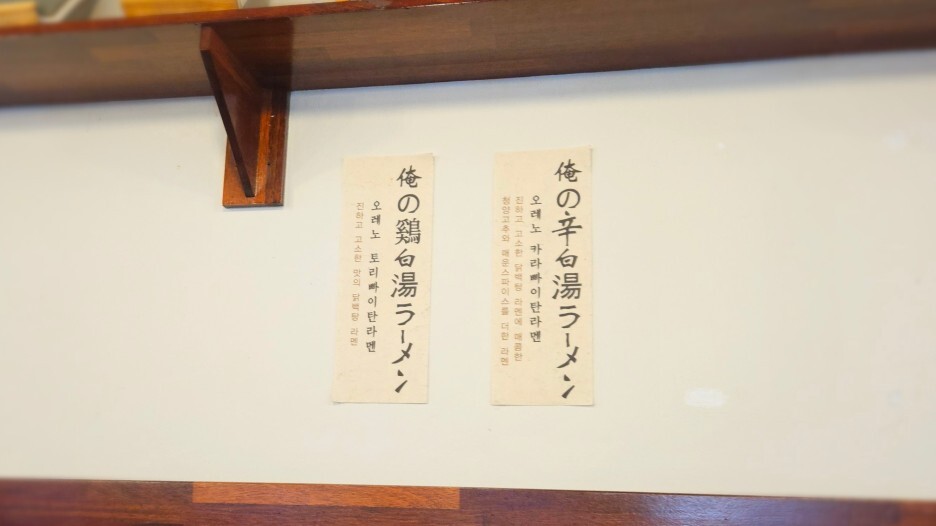 俺の鶏白湯ラーメン
오레노 토리빠이탄라멘
진하고 고소한 맛의 닭백탕 라멘
俺の辛白湯ラーメン
오레노 카라빠이탄라멘
진하고 고소한 닭백탕 라멘에 매콤한
청양고추와 매운스파이스를 더한 라멘